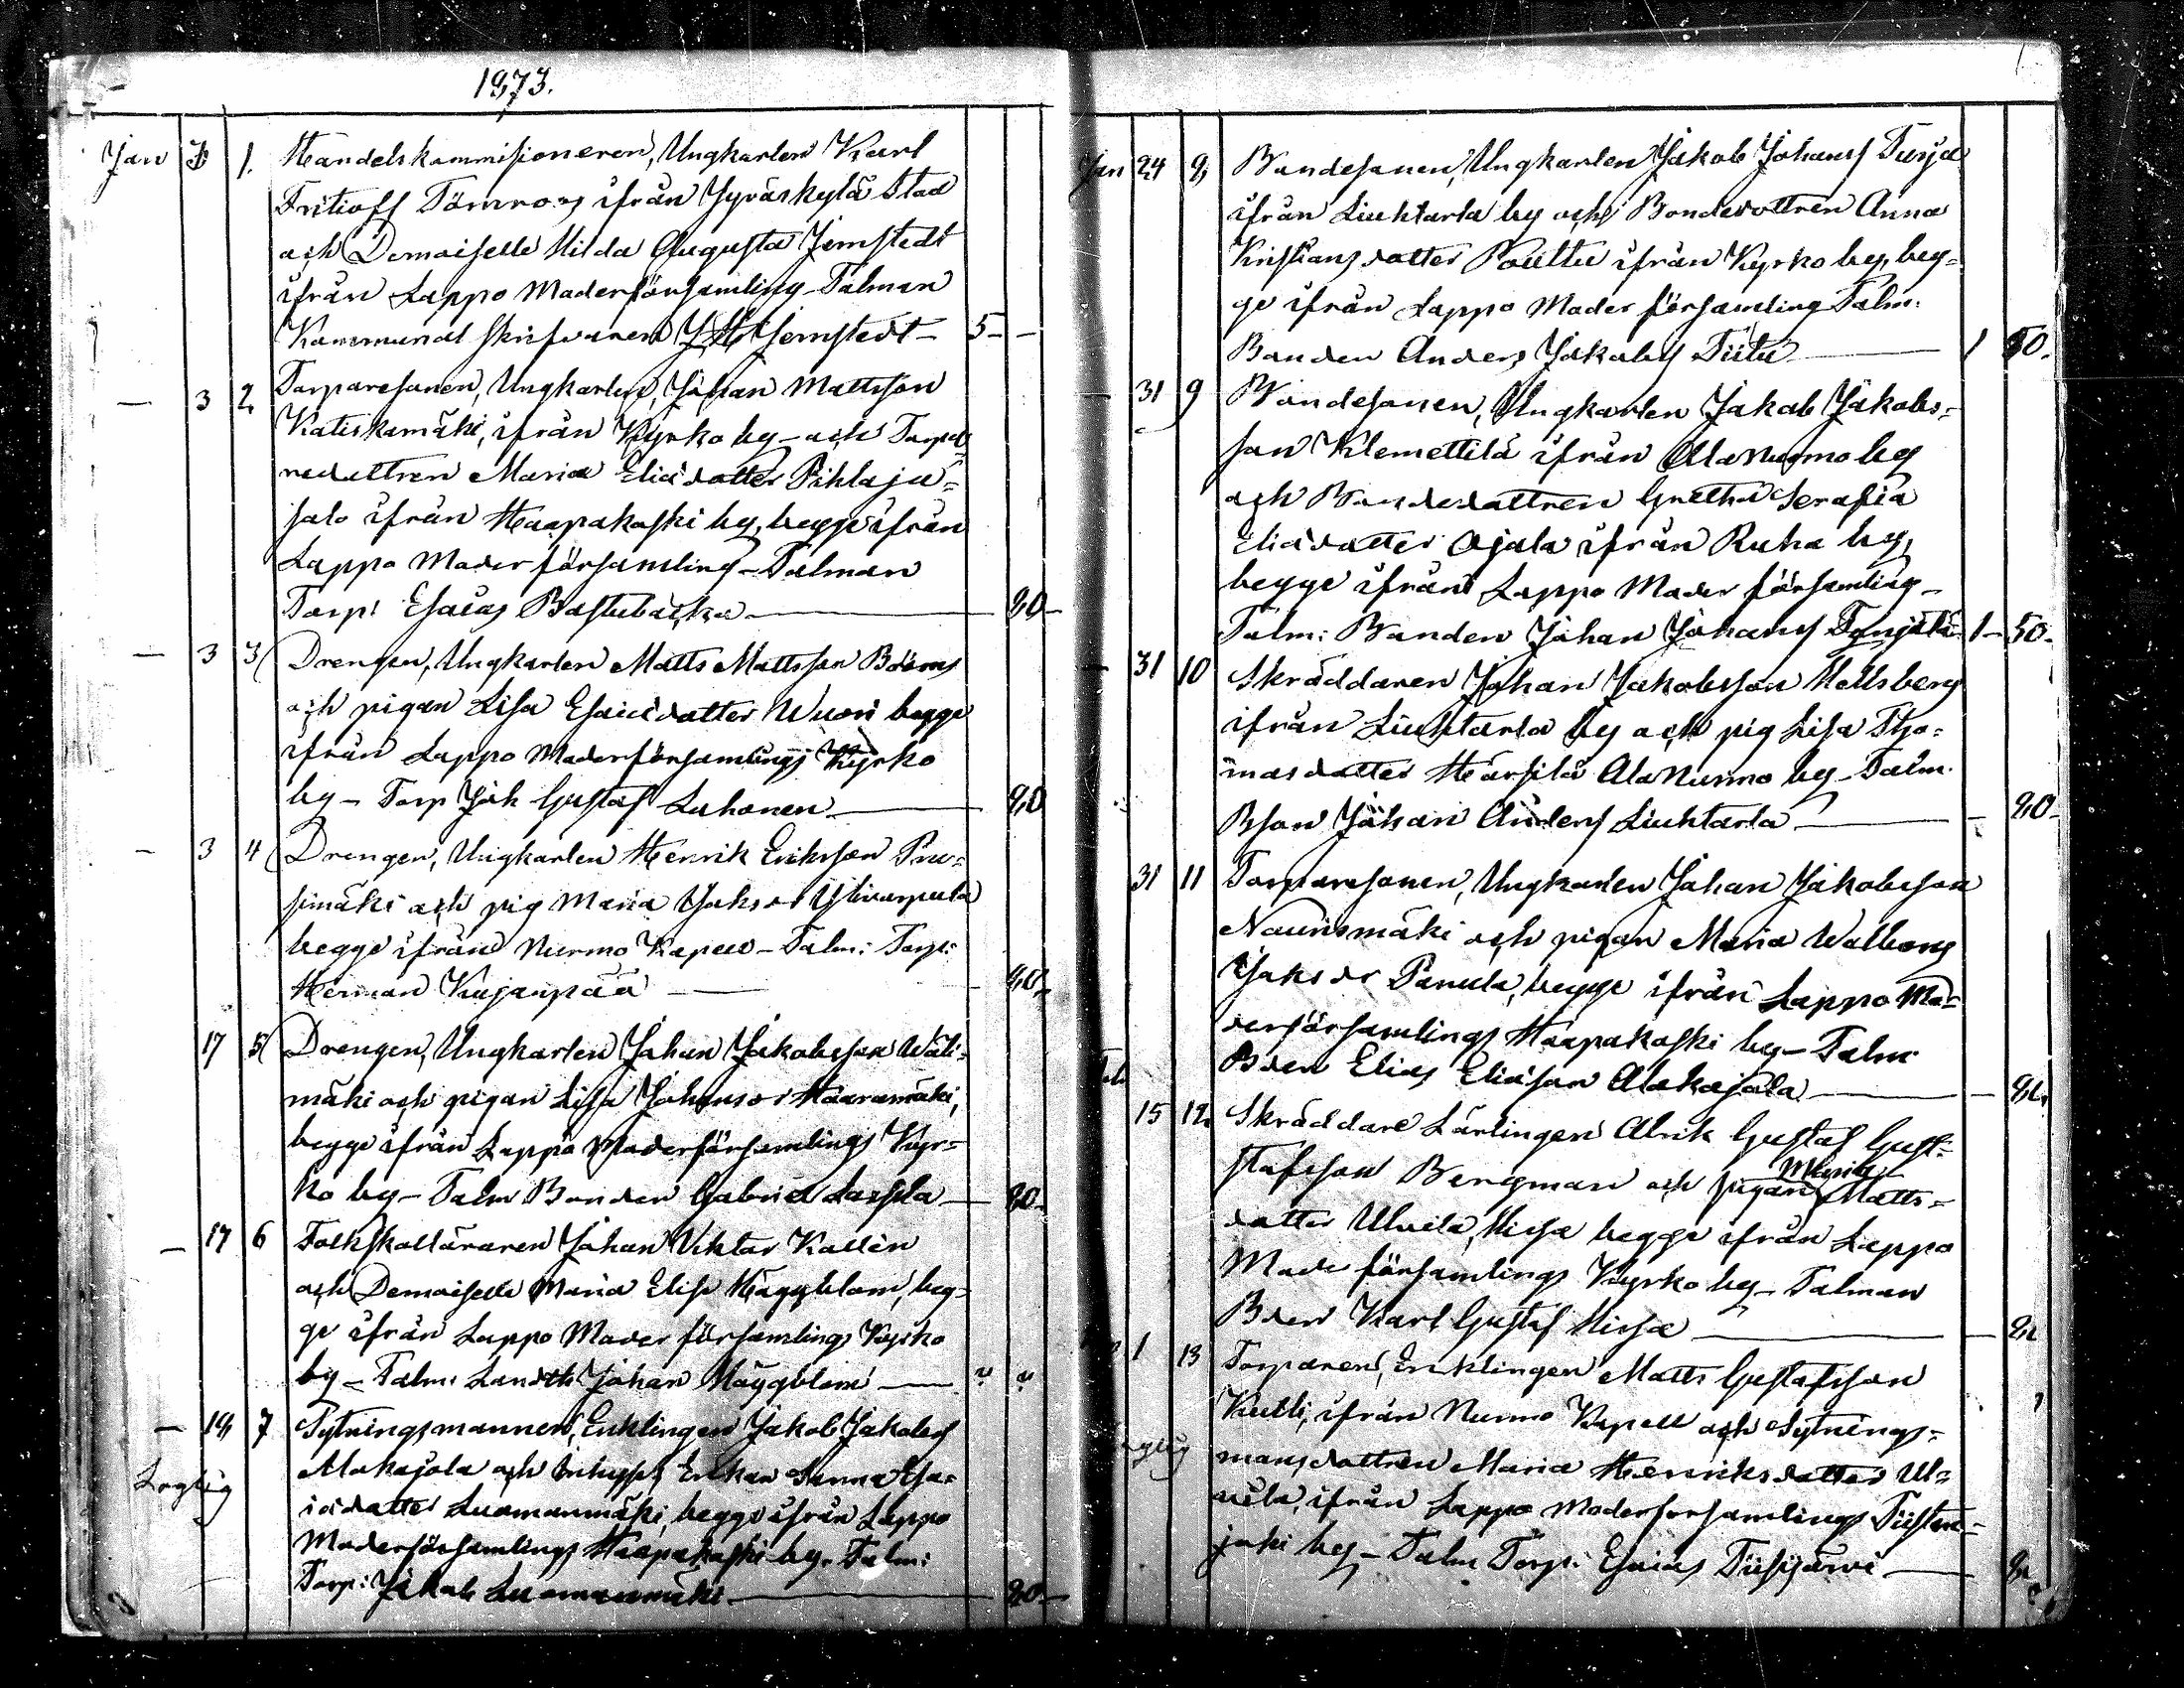 1873.
Jan 3 1. Handelskommissioneren, Ungkarlen Karl
Fritioff Törnroos ifrån Jyväskylä Stad
och Demoiselle Hilda Augusta Jernstedt
ifrån Lappo Moderförsamling – Talman
Kommunal skrifvaren Jernstedt – 5 –
– 3 2 Torparesonen, Ungkarlen, Johan Mattsson
Katiskamäki, ifrån Kyrko by – och Torpa
redottren Maria Eliædotter Pihlaja=
salo ifrån Haapakoski by, begge ifrån
Lappo Moderförsamling – Talman
Torp: Esaias Bastubacka – 80 –
– 3 3 Drengen, Ungkarlen Matts Mattsson
och pigan Lisa Esaiædotter Wuori begge
ifrån Lappo Moderförsamlings Kyrko
by – Torp Joh Gustaf Luhonen – 80
– 3 4 Drengen, Ungkarlen Henrik Eriksson
simäki och pig Maria Jaksdr Yliwarpula
begge ifrån Nurmo Kapell – Talm: Torp:
Herman Kujanpää – 80
17 5 Drengen, Ungkarlen Johan Jakobsson Wäli=
mäki och pigan Lisa Johansdr Haaramäki,
begge ifrån Lappo Moderförsamlings Kyr=
ko by – Talm Bonden Gabriel – 80 –
– 17 6 Folkskolläraren Johan Viktor Kallen
och Demoiselle Maria Elise Häggblom, beg=
ge ifrån Lappo Moder församlings Kyrko
by – Talm: Johan Häggblom – " "
– 19 7 Sytningsmannen, Enklingen Jakob Jakobss
och Enkan Sanna Esa=
iædotter Luomanmäki, begge ifrån Lappo
Moderförsamlings Haapakoski by. Talm:
Torp: Jakob Luomanmäki – 80 –
Jan 24 8, Bondesonen, Ungkarlen Jakob Johanss Turja
ifrån Liuhtarla by och Bondedottren Anna
Kristiansdotter Pouttu ifrån Kyrko by, beg=
ge ifrån Lappo Moder församling Talm:
Bonden Anders Jakobss Tiitu – 1 50.
– 31 9 Bondesonen, Ungkarlen Jakob Jakobs=
son Klemettilä ifrån Ala Nurmo by
och Bondedottren Gretha Serafia
Eliædotter Ojala ifrån Ruha by,
begge ifrån Lappo Moder församling –
Talm: Bonden Johan Johanss – 1 – 50 –
– 31 10 Skräddaren Johan Jakobsson Hellsberg
ifrån Liuhtarla by och pig Lisa Tho=
masdotter Härsilä Ala Nurmo by – Talm.
Bson Johan Anderss Liuhtarla – 80 –
31 11 Torparesonen, Ungkarlen Johan Jakobsson
Naurismäki och pigan Maria Walborg
Jaksdr Panula, begge ifrån Lappo Mo=
derförsamlings Haapakoski by – Talm
Bden Elias Eliasson Alakojola – 80
15 12. Skräddare Lärlingen Alrik Gustaf Gust=
stafsson Bergman och pigan Maria Matts=
dotter Ulvila, Hirsa begge ifrån Lappo
Moder församlings Kyrko by – Talman
Bden Karl Gustaf Hirsa – 80
1 13 Torparen, Enklingen Matts Gustafsson
Kulli, ifrån Nurmo Kapell och Sytnings=
mansdottren Maria Henriksdotter Ul=
ifrån Lappo Moderförsamlings Tiisten=
joki by – Talm Torp: Esaias Tiisijärvi – 80